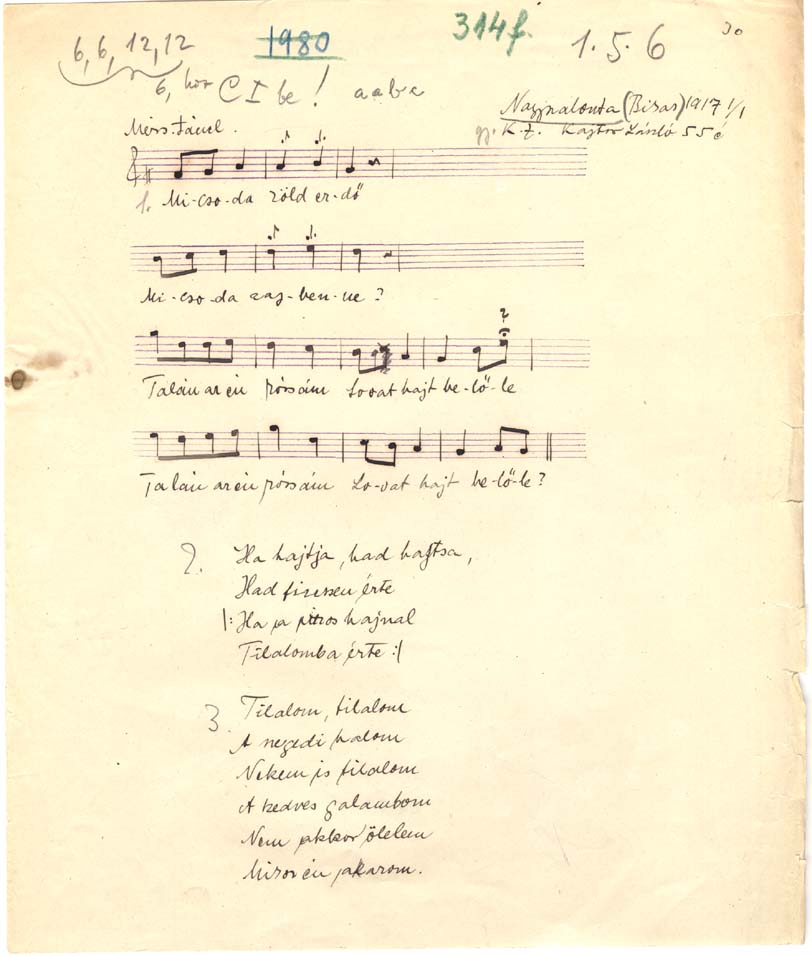 6, 6, 12, 12
1980
314f.
1. 5. 6
30
6, hoz CI be! a a b c
Nagyszalonta (Bihar) 1917 1/1
gy. K. Z. Kasztor László 55 é
Mérs. tánel.
1. Mi-cso-da zöld er-dő
Mi-cso-da zaz-ben-ne?
Talán az én rózsám Lovat hajt be-lő-le
?
Talán az én rózsám Lo-vat hajt be-lő-le?
2. Ha hajtja, had hajtsa,
Had fizessen érte
|: Ha a piros hajnal
Tilalomba érte :|
3. Tilalom, tilalom
A negedi halom
Nekem is tilalom
A kedves galambom
Nem akkor ölelem
Mikor én akarom.